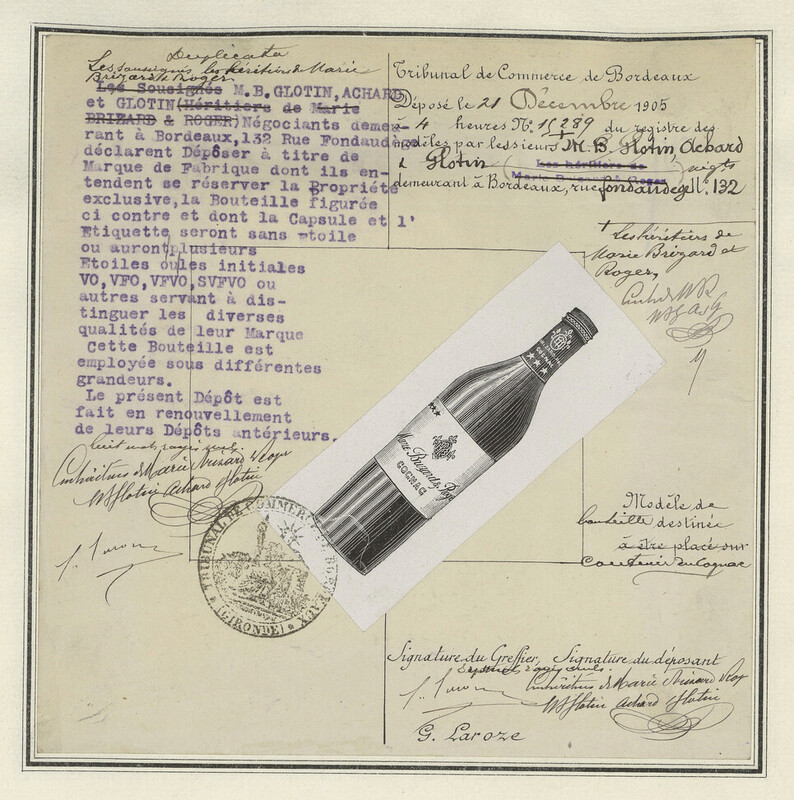 Duplicata
Les soussignés les héritiers de Marie
Brizard & Roger
Les Sousignés M.B.GLOTIN,ACHARD
et GLOTIN(Héritiers de Marie
BRIZARD & ROGER)Négociants demeu-
rant à Bordeaux,132 Rue Fondaudège
déclarent Dépôser à titre de
Marque de Fabrique dont ils en-
tendent se réserver la Propriété
exclusive,la Bouteille figurée
ci contre et dont la Capsule et l'
Etiquette seront sans etoile
ou auront plusieurs
Etoiles ou les initiales
VO,VFO,VFVO,SVFVO ou
autres servant à dis-
tinguer les diverses
qualités de leur Marque
Cette Bouteille est
employée sous différentes
grandeurs.
Le présent Dépôt est
fait en renouvellement
de leurs Dépôts antérieurs.
huit mots rayés nuls
Les héritiers de Marie Brizard & Roger
MB Glotin Achard Glotin
TRIBUNAL DE COMMERCE DE BORDEAUX
(GIRONDE)
Tribunal de Commerce de Bordeaux
Déposé le 21 Décembre 1905
à 4 heures No. 10289 du registre des
modèles par les sieurs M. B. Glotin Achard
& Glotin (Les héritiers de
Marie Brizard & Roger) négts
demeurant à Bordeaux, rue fondaudège No. 132
+ Les héritiers de
Marie Brizard et
Roger,
MARIE BRIZARD & ROGER
COGNAC
Marie Brizard & Roger
COGNAC
Modèle de
bouteille destinée
à être placé sur
contenir du Cognac
Signature du Greffier, Signature du déposant
rayés nuls
Les héritiers de Marie Brizard & Roger
MB Glotin Achard Glotin
G. Laroze